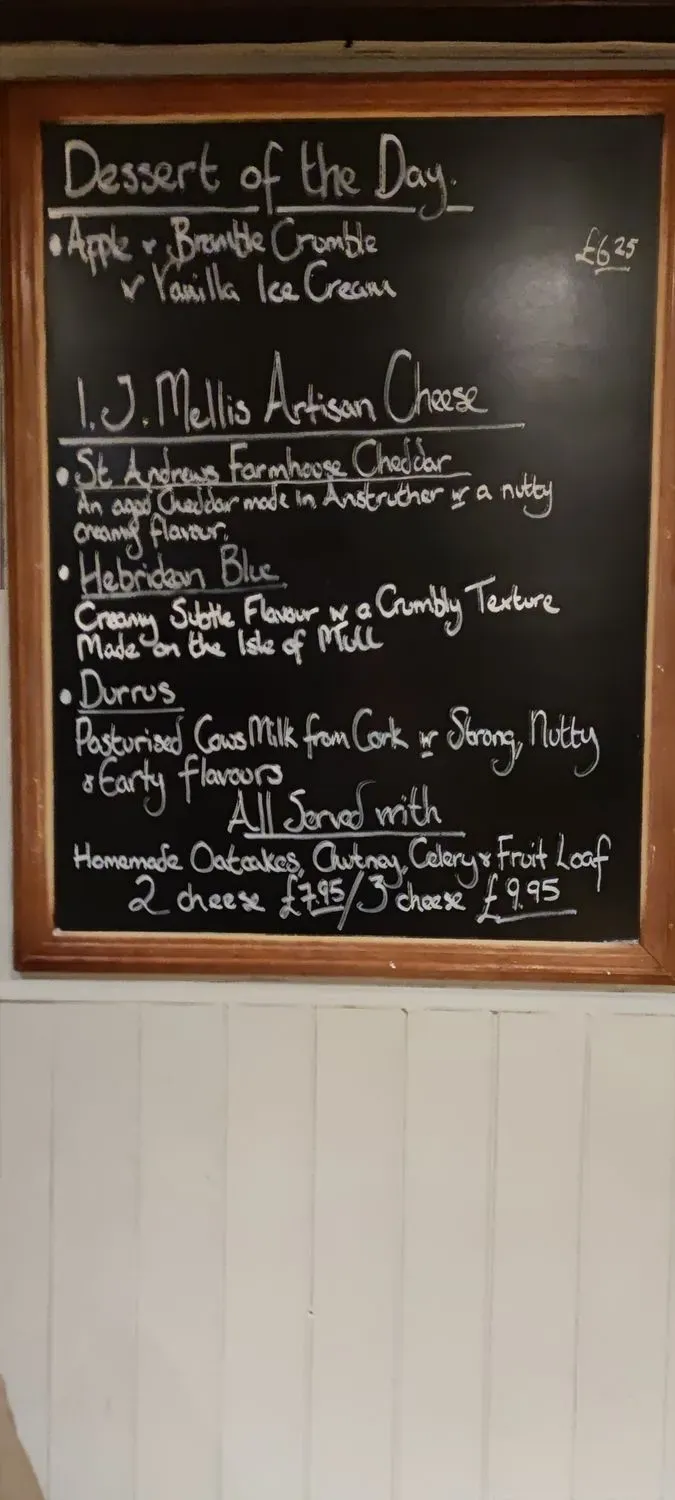 Dessert of the Day.
• Apple & Bramble Crumble £6.25
w Vanilla Ice Cream
I.J. Mellis Artisan Cheese
• St. Andrews Farmhouse Cheddar
An aged Cheddar made in Anstruther w a nutty
creamy flavour.
• Hebridean Blue
Creamy Subtle Flavour w a Crumbly Texture
Made on the Isle of Mull
• Durrus
Pasturised Cows Milk from Cork w Strong, Nutty
& Earty flavours
All Served with
Homemade Oatcakes, Chutney, Celery & Fruit Loaf
2 cheese £7.95/3 cheese £9.95